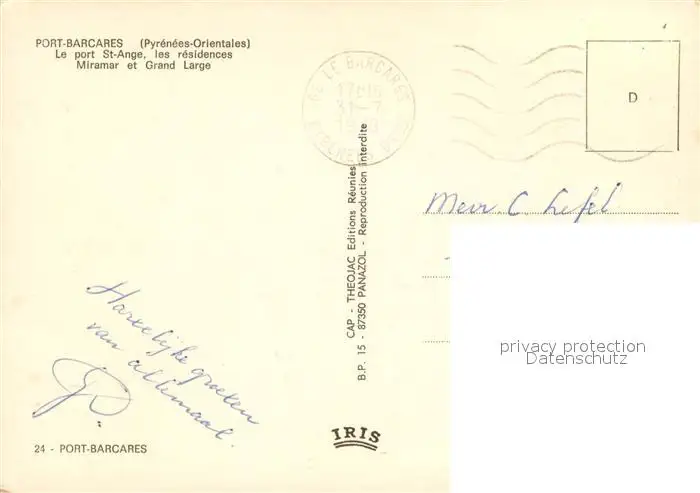 PORT-BARCARES (Pyrénées-Orientales)
Le port St-Ange, les résidences
Miramar et Grand Large
LE BARCARES
D
CAP - THEOJAC Editions Réunies
B.P. 15 - 87350 PANAZOL - Reproduction interdite
Mevr. C. Lefel
Hartelijke groeten
van allemaal.
privacy protection
Datenschutz
IRIS
24 - PORT-BARCARES